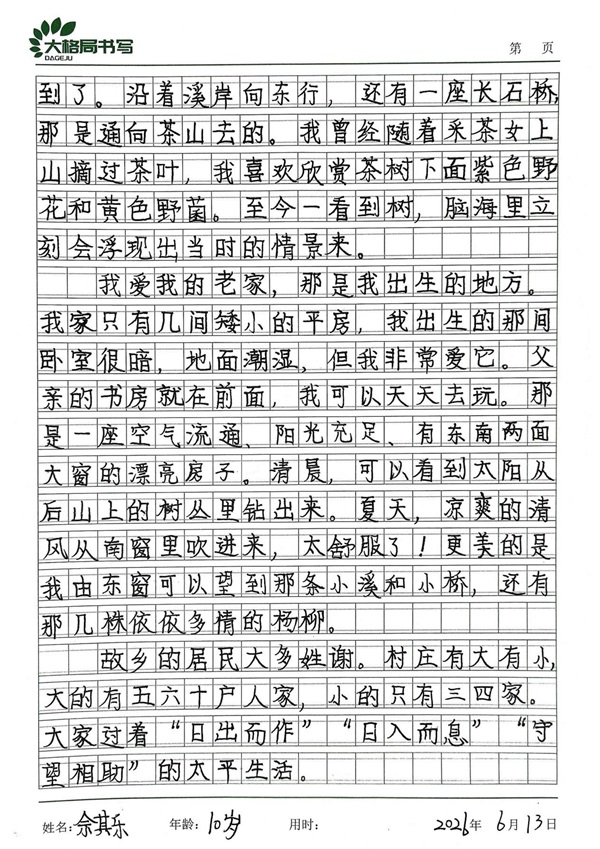 大格局书写
DAGEJU
第 页
到了。沿着溪岸向东行，还有一座长石桥，
那是通向茶山去的。我曾经随着采茶女上
山摘过茶叶，我喜欢欣赏茶树下面紫色野
花和黄色野菌。至今一看到树，脑海里立
刻会浮现出当时的情景来。
我爱我的老家，那是我出生的地方。
我家只有几间矮小的平房，我出生的那间
卧室很暗，地面潮湿，但我非常爱它。父
亲的书房就在前面，我可以天天去玩。那
是一座空气流通、阳光充足、有东南两面
大窗的漂亮房子。清晨，可以看到太阳从
后山上的树丛里钻出来。夏天，凉爽的清
风从南窗里吹进来，太舒服了！更美的是
我由东窗可以望到那条小溪和小桥，还有
那几株依依多情的杨柳。
故乡的居民大多姓谢。村庄有大有小，
大的有五六十户人家，小的只有三四家。
大家过着“日出而作”“日入而息”“守
望相助”的太平生活。
姓名：佘其乐 年龄：10岁 用时： 2026年 6月13日